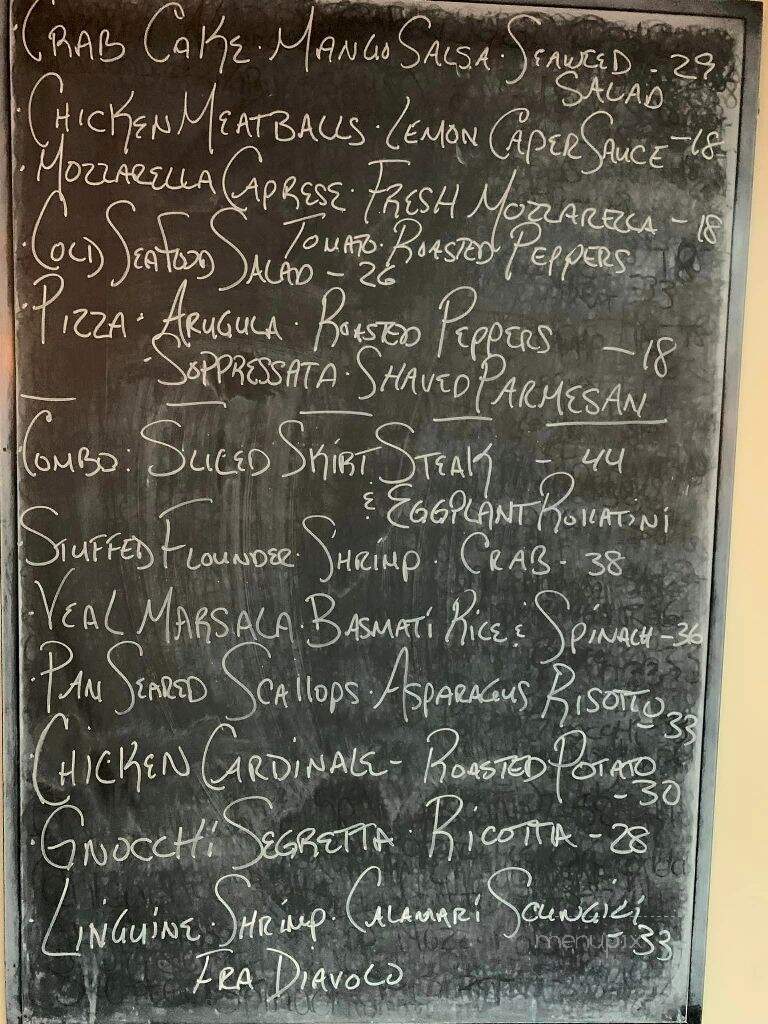 · Crab Cake · Mango Salsa · Seaweed - 29
Salad
· Chicken Meatballs · Lemon Caper Sauce - 18
· Mozzarella Caprese · Fresh Mozzarella - 18
Tomato · Roasted Peppers
· Cold Seafood Salad - 26
· Pizza · Arugula · Roasted Peppers - 18
· Soppressata · Shaved Parmesan
Combo: Sliced Skirt Steak - 44
& Eggplant Rollatini
Stuffed Flounder · Shrimp · Crab - 38
· Veal Marsala · Basmati Rice & Spinach - 36
· Pan Seared Scallops · Asparagus Risotto - 33
· Chicken Cardinale - Roasted Potato - 30
· Gnocchi Segretta · Ricotta - 28
· Linguine · Shrimp · Calamari Scungili - 33
Fra Diavolo
menupix